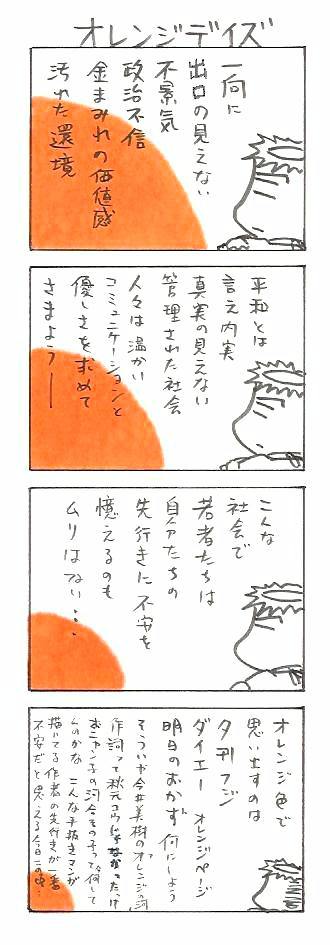 オレンジデイズ
一向に
出口の見えない
不景気
政治不信
金まみれの価値感
汚れた環境
平和とは
言え内実
真実の見えない
管理された社会
人々は温かい
コミュニケーションと
優しさを求めて
さまよう――
こんな
社会で
若者たちは
自分たちの
先行きに不安を
憶えるのも
ムリはない・・・
オレンジ色で
思い出すのは
夕刊フジ
ダイエー オレンジページ
明日のおかず何にしよう
そういや今井美樹のオレンジの河
作詞って秋元コウじゃなかったっけ
おニャン子の河合その子って何して
んのかな こんな手抜きマンガ
描いてる作者の先行きが一番
不安だと思える今日この頃…